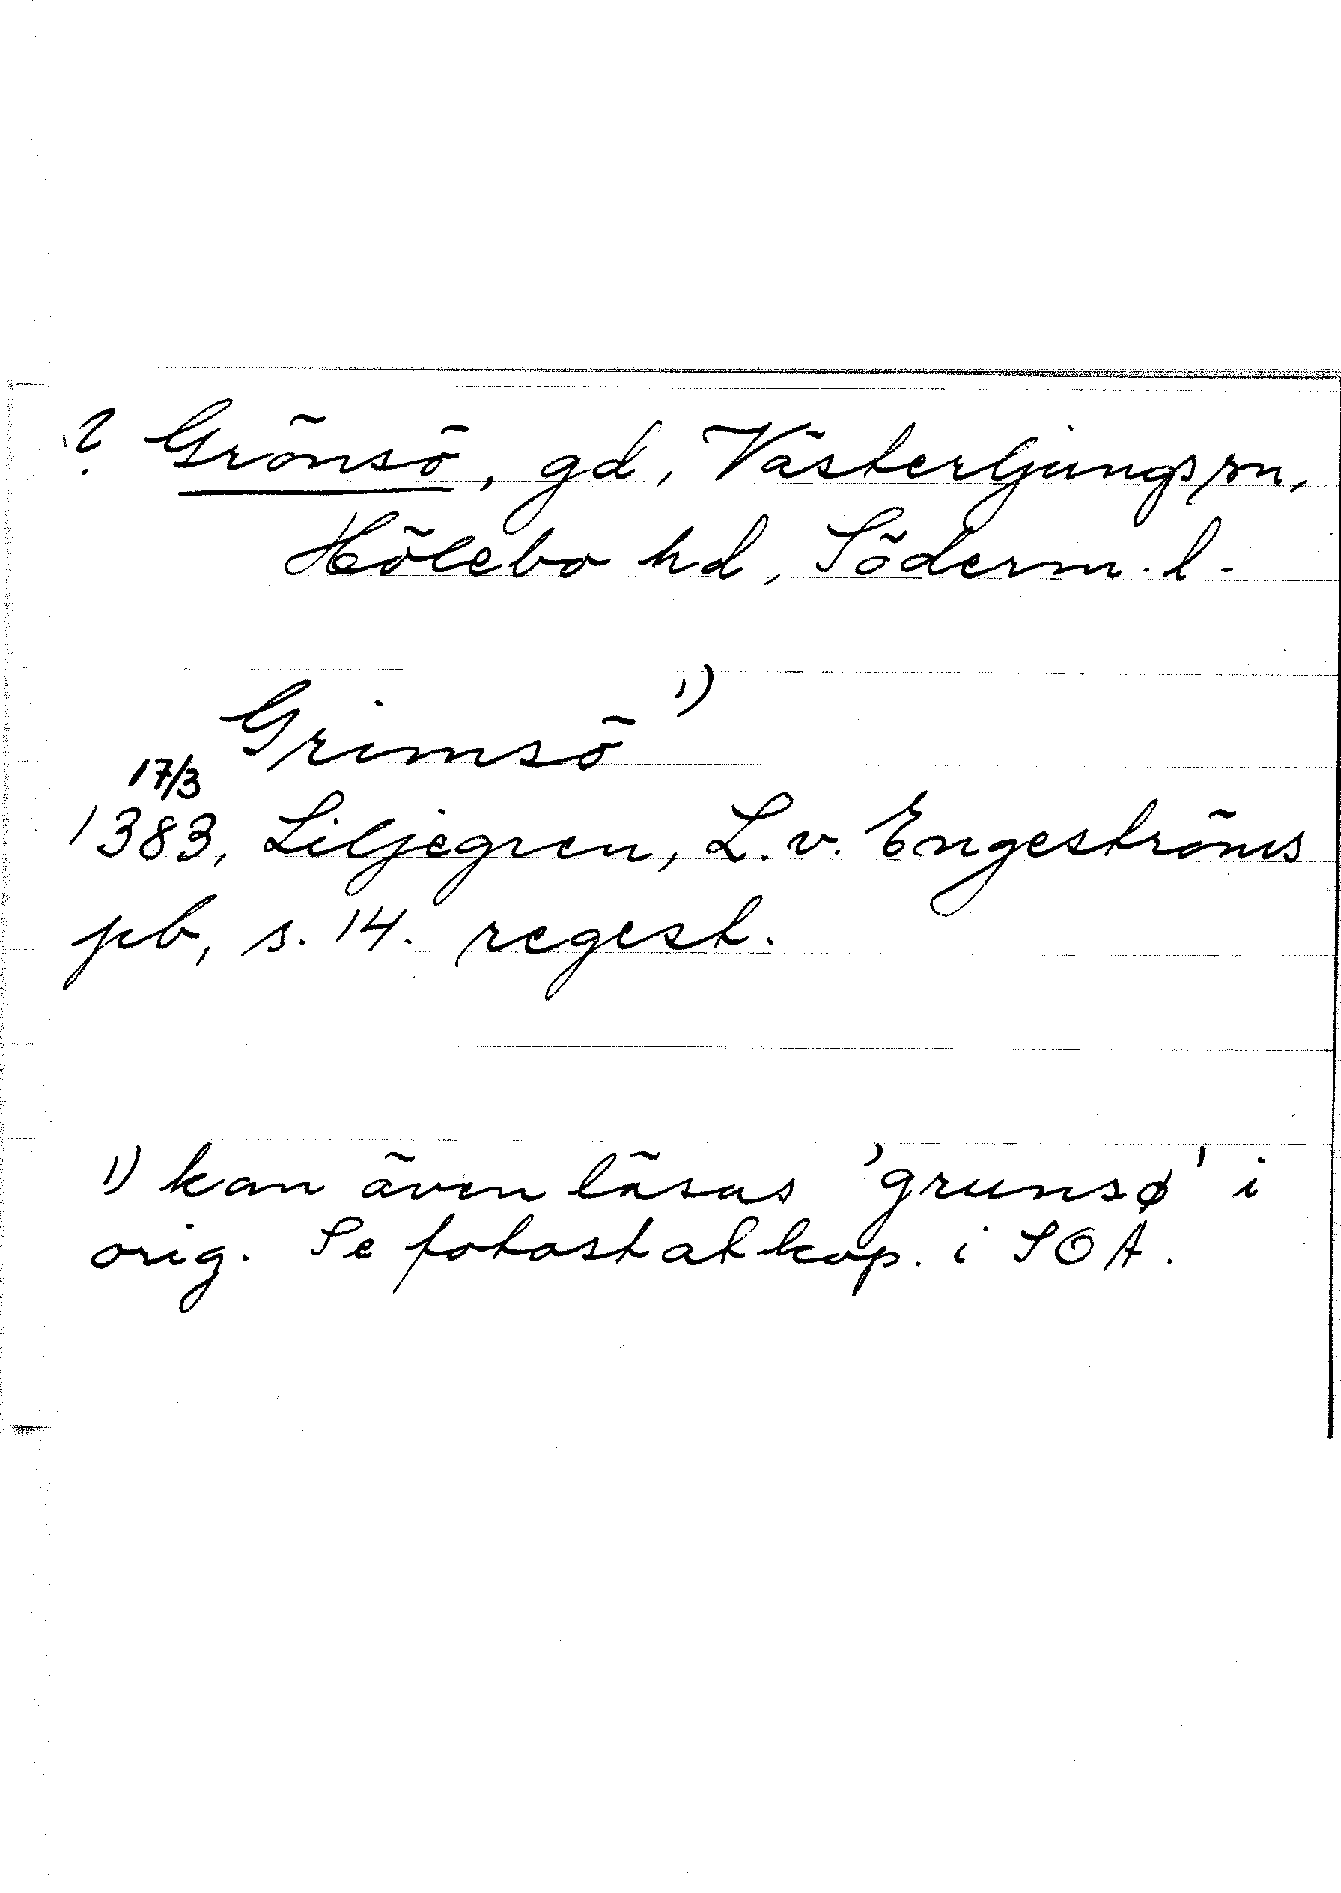 ? Grönsö, gd, Västerljungs sn,
Hölebo hd, Söderm. l.
Grimsö 1)
17/3
1383, Liljegren, L. v. Engeströms
pb, s. 14. regest.
1) kan även läsas 'grunsø' i
orig. Se fotostatkop. i SOA.